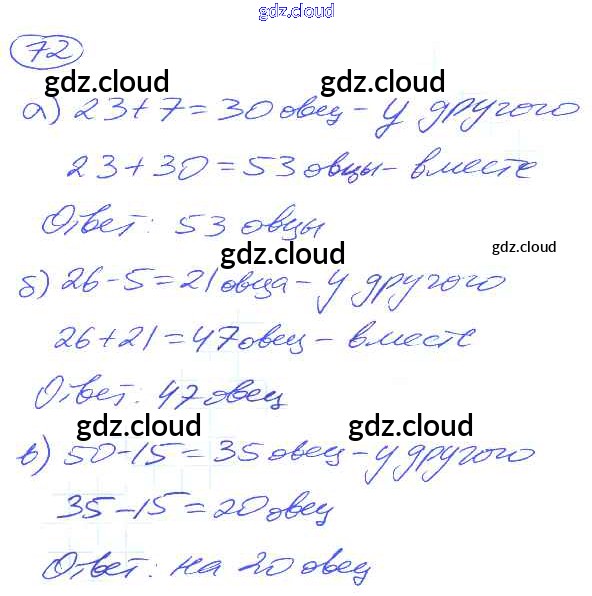 gdz.cloud
72
gdz.cloud gdz.cloud
а) 23+7=30 овец - у другого
23+30=53 овцы - вместе
Ответ: 53 овцы
gdz.cloud gdz.cloud
б) 26-5=21 овца - у другого
26+21=47 овец - вместе
Ответ: 47 овец
gdz.cloud gdz.cloud
в) 50-15=35 овец - у другого
35-15=20 овец
Ответ: на 20 овец